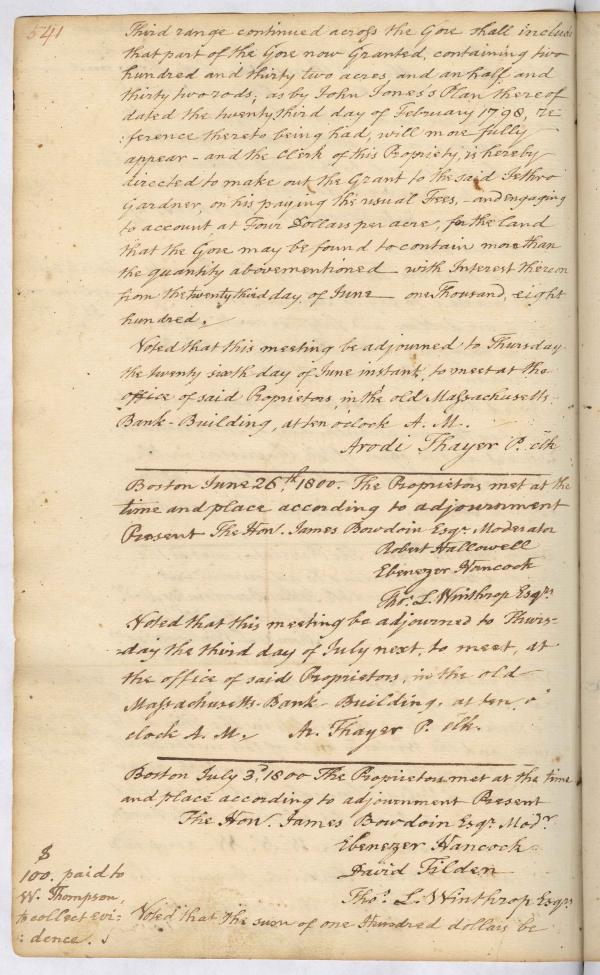 541
Third range continued across the Gore shall include
that part of the Gore now Granted, containing two
hundred and thirty two acres, and an half and
thirty two rods; as by John Jones's Plan thereof
dated the twenty third day of February 1798, re
:ference thereto being had, will more fully
appear - and the Clerk of this Propriety, is hereby
directed to make out the Grant to the said Jethro
Gardner, on his paying the usual Fees, - and engaging
to account at Four Dollars per acre, for the land
that the Gore may be found to contain more than
the quantity abovementioned - with Interest thereon
from the twenty third day of June - one Thousand, eight
hundred.
Voted that this meeting be adjourned to Thursday
the twenty sixth day of June instant, to meet at the
office of said Proprietors, in the old Massachusetts
Bank-Building, at ten o'clock A. M.
Arodi Thayer P. clk
Boston June 26th, 1800. The Proprietors met at the
time and place according to adjournment
Present The Hon. James Bowdoin Esqr. Moderator
Robert Hallowell
Ebenezer Hancock
Thos. L. Winthrop Esqrs
Voted that this meeting be adjourned to Thurs-
-day the third day of July next, to meet, at
the office of said Proprietors, in the old
Massachusetts-Bank-Building, at ten o'
clock A. M. Ar. Thayer P. clk.
Boston July 3d, 1800 The Proprietors met at the time
and place according to adjournment Present
The Hon. James Bowdoin Esqr. Modr.
Ebenezer Hancock
David Tilden
Thos. L. Winthrop Esqrs
$
100. paid to
W. Thompson,
to collect evi:
: dence.
Voted that the sum of one Hundred dollars be